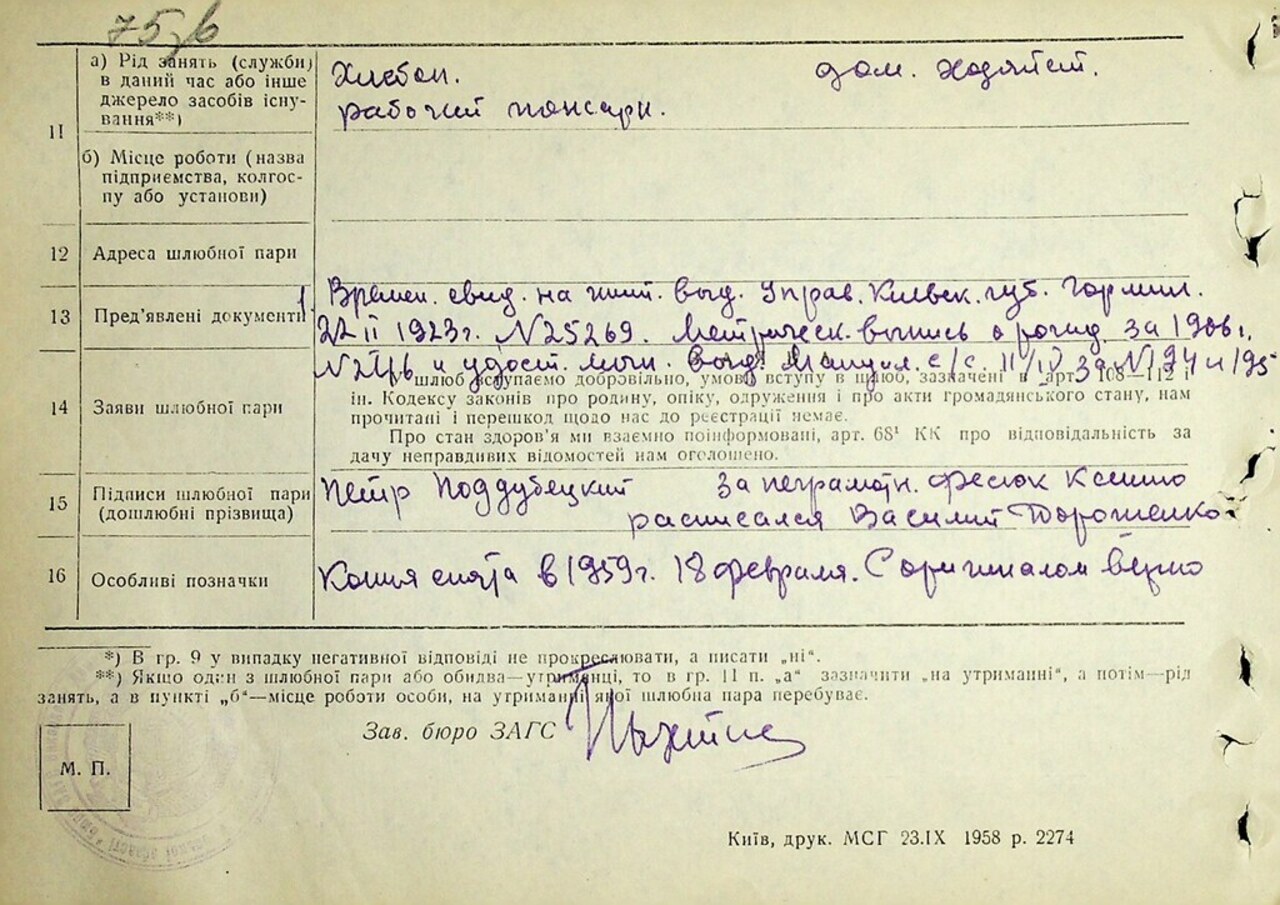 75
11
а) Рід занять (служби)
в даний час або інше
джерело засобів існу-
вання**)
дом. хозяйст.
рабочий
б) Місце роботи (назва
підприємства, колгос-
пу або установи)
12 Адреса шлюбної пари
13 Пред'явлені документи
Времен. свид. на жит. выд. Управ. Киевск. губ. Гормил.
22 II 1923г. N25269. Метрическ. выпись о рожд. за 1906г.
и удост. личн. выд. с/с. 11/IV N194 и 195
14 Заяви шлюбної пари
У шлюб вступаємо добровільно, умови вступу в шлюб, зазначені в арт. 108—112 і
ін. Кодексу законів про родину, опіку, одруження і про акти громадянського стану, нам
прочитані і перешкод щодо нас до реєстрації немає.
Про стан здоров'я ми взаємно поінформовані, арт. 68¹ КК про відповідальність за
дачу неправдивих відомостей нам оголошено.
15 Підписи шлюбної пари
(дошлюбні прізвища)
Петр Поддубецкий За неграмотн. Фесюк Ксению
расписался Василий Дорошенко
16 Особливі позначки
Копия снята в 1959г. 18 февраля. С оригиналом верно
*) В гр. 9 у випадку негативної відповіді не прокреслювати, а писати „ні“.
**) Якщо один з шлюбної пари або обидва—утриманці, то в гр. 11 п. „а“ зазначити „на утриманні“, а потім—рід
занять, а в пункті „б“—місце роботи особи, на утриманні якої шлюбна пара перебуває.
Зав. бюро ЗАГС
М. П.
Київ, друк. МСГ 23.IX 1958 р. 2274